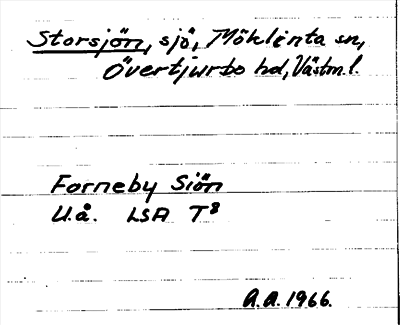 Storsjön, sjö, Möklinta sn,
Övertjurbo hd, Västm. l.
Forneby Siön
U.å. LSA T8
A.A. 1966.